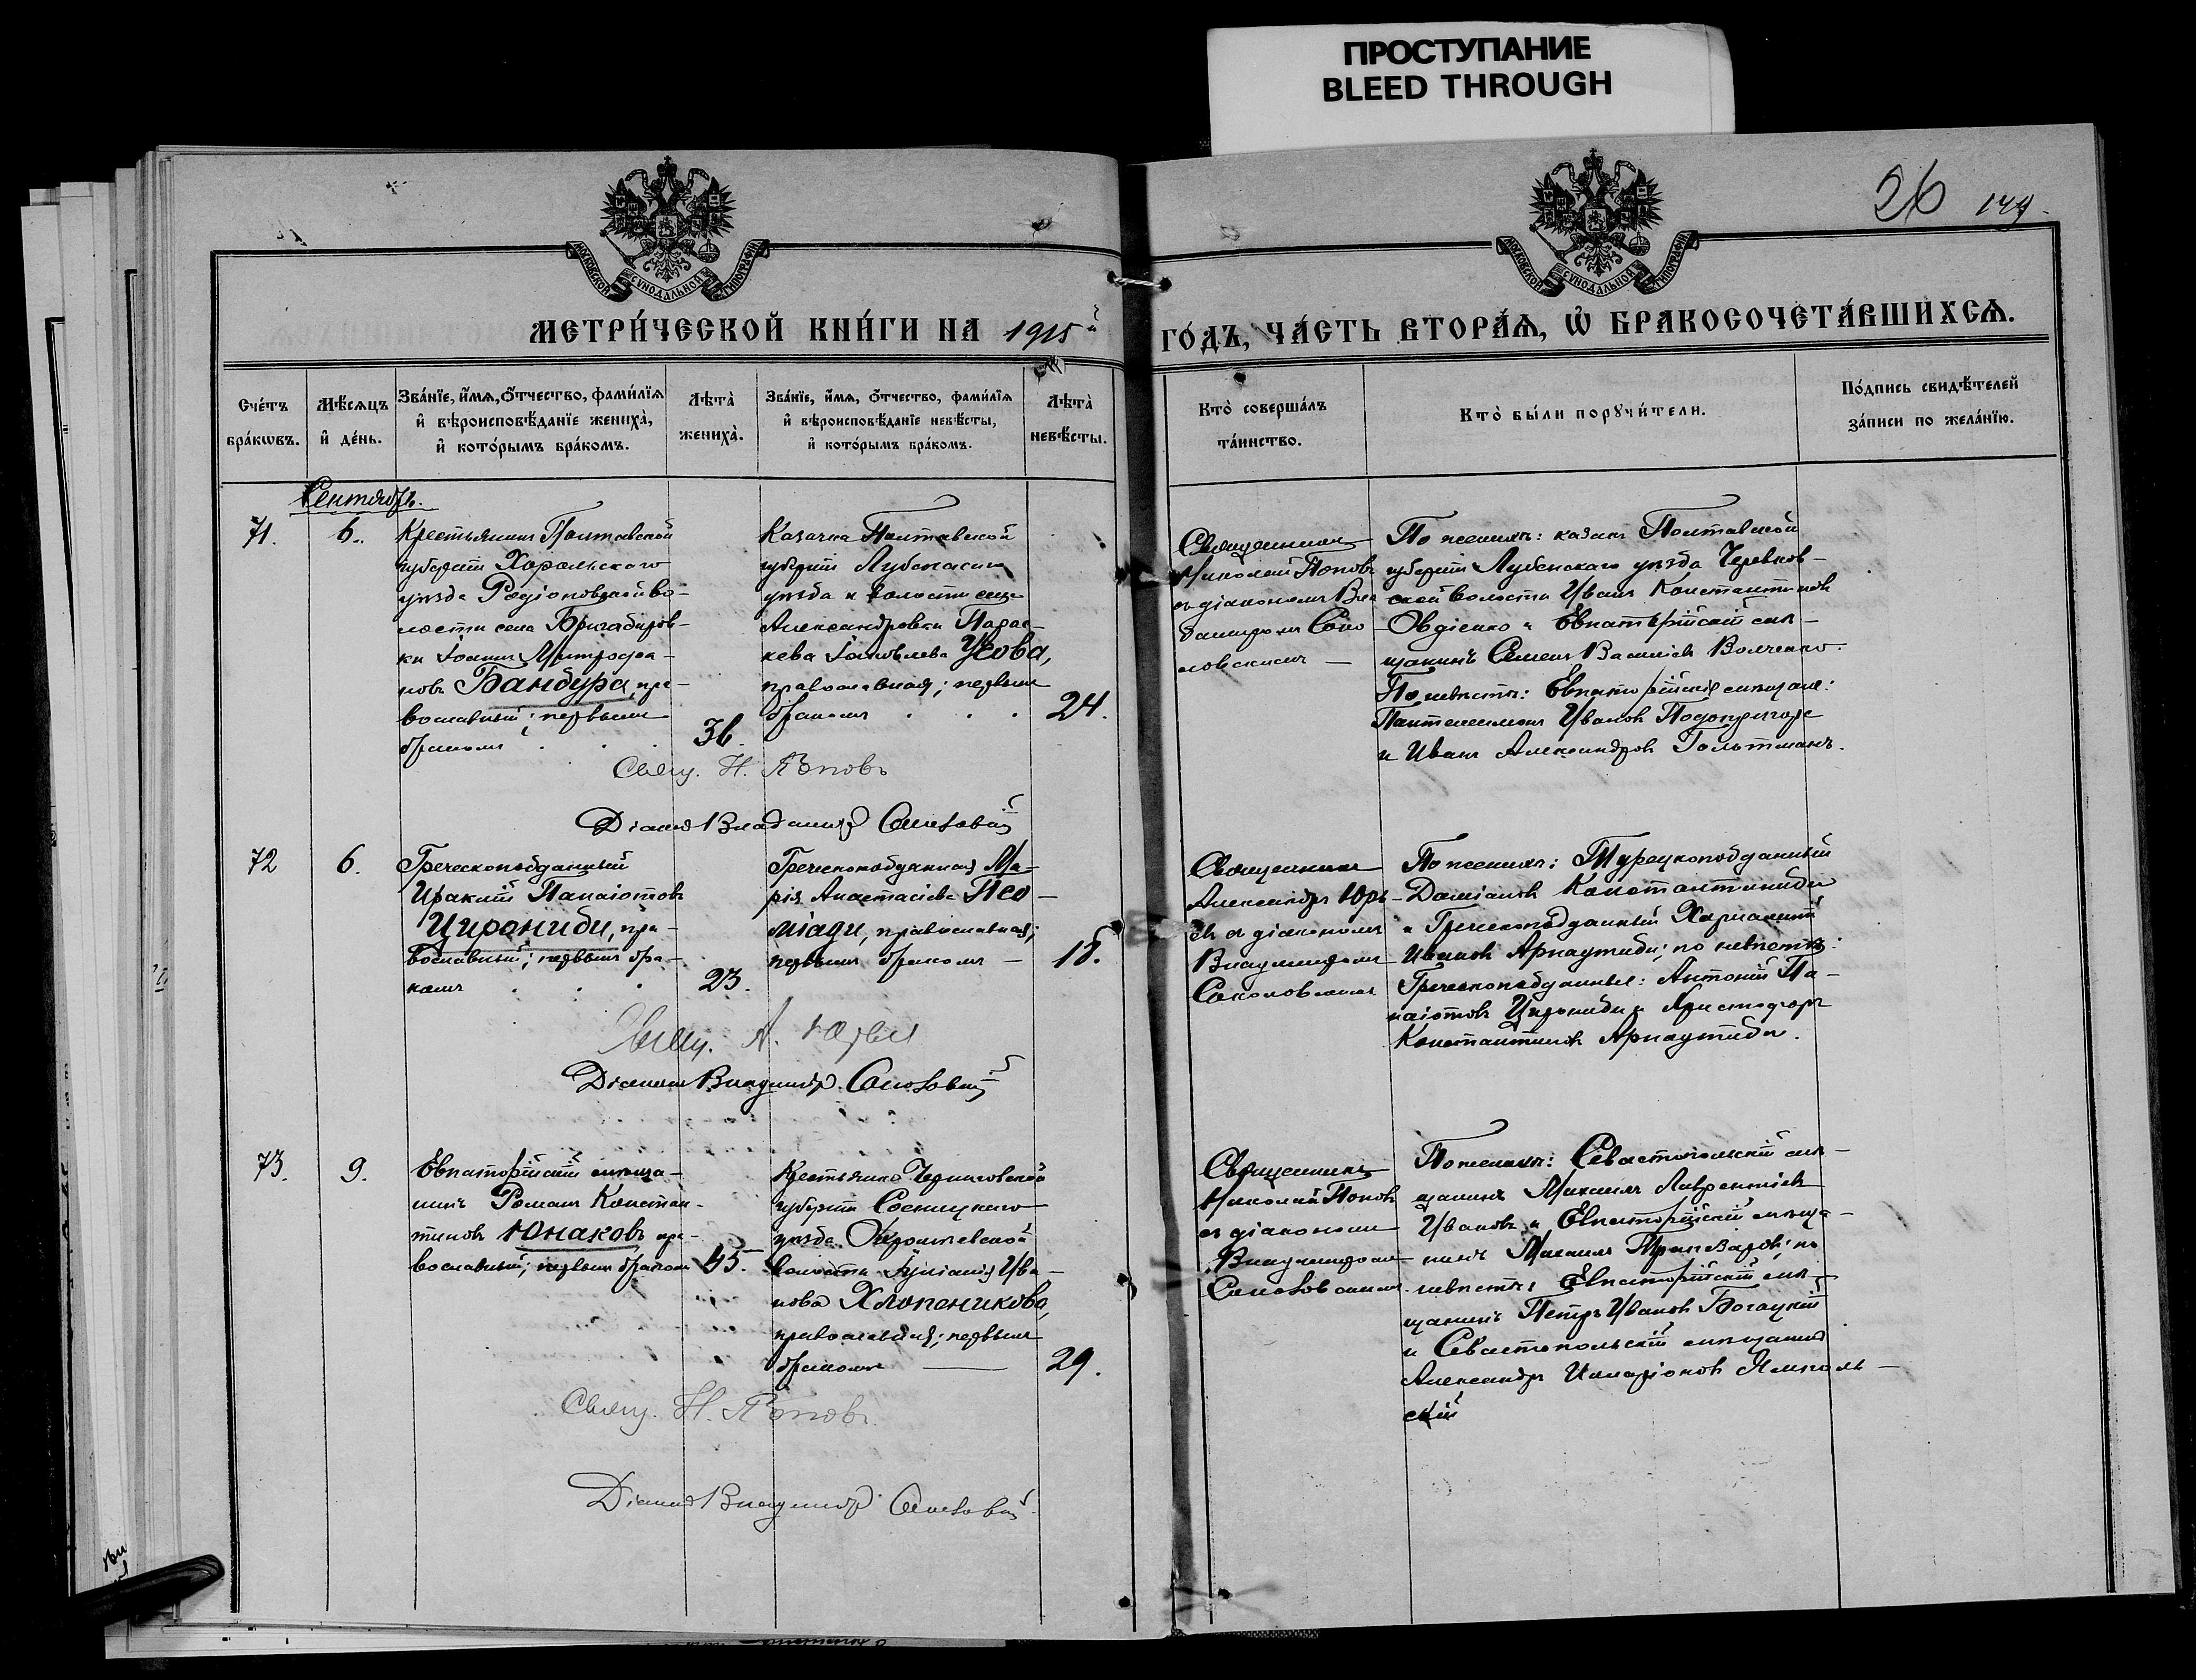 ПРОСТУПАНИЕ
BLEED THROUGH
26 149.
МОСКОВСКОЙ СѴНОДАЛЬНОЙ ТИПОГРАФІИ
МОСКОВСКОЙ СѴНОДАЛЬНОЙ ТИПОГРАФІИ
МЕТРИ́ЧЕСКОЙ КНИ́ГИ НА 1915й
ГО́ДЪ, ЧА́СТЬ ВТОРА́Я, Ѽ БРАКОСОЧЕТА́ВШИХСЯ.
Счéтъ
брáкѡвъ.
Мѣ́сяцъ
и҆ дéнь.
Звáнїе, и҆́мя, ѻ҆́тчество, фами́лїя
и҆ вѣроисповѣ́данїе женихà,
и҆ котóрымъ брáкомъ.
Лѣ́та
женихà.
Звáнїе, и҆́мя, ѻ҆́тчество, фами́лїя
и҆ вѣроисповѣ́данїе невѣ́сты,
и҆ котóрымъ брáкомъ.
Лѣ́та
невѣ́сты.
Ктò совершáлъ
тáинство.
Ктò бы́ли порꙋчи́тели.
Пóдпись свидѣ́телей
зáписи по желáнїю.
Сентябрь.
71.
6.
Крестьянинъ Полтавской
губерніи Хорольскаго
уѣзда Родіоновской во-
лости села Бригадиров-
ки Іоаннъ Митрофа-
новъ Бандура, пра-
вославный; первымъ
бракомъ . . .
36.
Казачка Полтавской
губерніи Лубенскаго
уѣзда и волости села
Александровки Парас-
кева Іаковлева Усова,
православная; первымъ
бракомъ . . .
24.
Священникъ
Николай Поповъ
съ діакономъ Вла
диміромъ Соко
ловскимъ —
По женихѣ: казакъ Полтавской
губерніи Лубенскаго уѣзда Черевков-
ской волости Иванъ Константиновъ
Овдіенко и Евпаторійскій мѣ-
щанинъ Семенъ Васильевъ Волченко.
По невѣстѣ: Евпаторійскіе мѣщане:
Пантелеимонъ Ивановъ
и Иванъ Александровъ Гольтманъ.
Свящ. Н. Поповъ
Діаконъ Владиміръ Соколовскій
72
6.
Греческоподданный
Ираклій Панаіотовъ
Цирониди, пра-
вославный; первымъ бра-
комъ . . .
23.
Греческоподданная Ма-
рія Анастасіева Пса-
міади, православная;
первымъ бракомъ —
18.
Священникъ
Александръ Юрь-
евъ съ діакономъ
Владиміромъ
Соколовскимъ
По женихѣ: Турецкоподданный
Даміанъ Константиниди
и Греческоподданный Харлампій
Ивановъ Арнаутиди; по невѣстѣ:
Греческоподданные: Антоній Па-
наіотовъ Циропиди и Христофоръ
Константиновъ Арнаутиди.
Свящ. А. Юрьевъ
Діаконъ Владиміръ Соколовскій
73.
9.
Евпаторійскій мѣща-
нинъ Романъ Констан-
тиновъ Юнаковъ, пра-
вославный; первымъ бракомъ
45.
Крестьянка Черниговской
губерніи Сосницкаго
уѣзда
волости Іуліанія Ива-
нова Хлопеникова,
православная; первымъ
бракомъ —
29.
Священникъ
Николай Поповъ
съ діакономъ
Владиміромъ
Соколовскимъ.
По женихѣ: Севастопольскій мѣ-
щанинъ Михаилъ Лаврентіевъ
Ивановъ и Евпаторійскій мѣща-
нинъ Михаилъ по
невѣстѣ: Евпаторійскій мѣ-
щанинъ Петръ Ивановъ Богацкій
и Севастопольскій мѣщанинъ
Александръ Иларіоновъ Ямполь-
скій
Свящ. Н. Поповъ.
Діаконъ Владиміръ Соколовскій